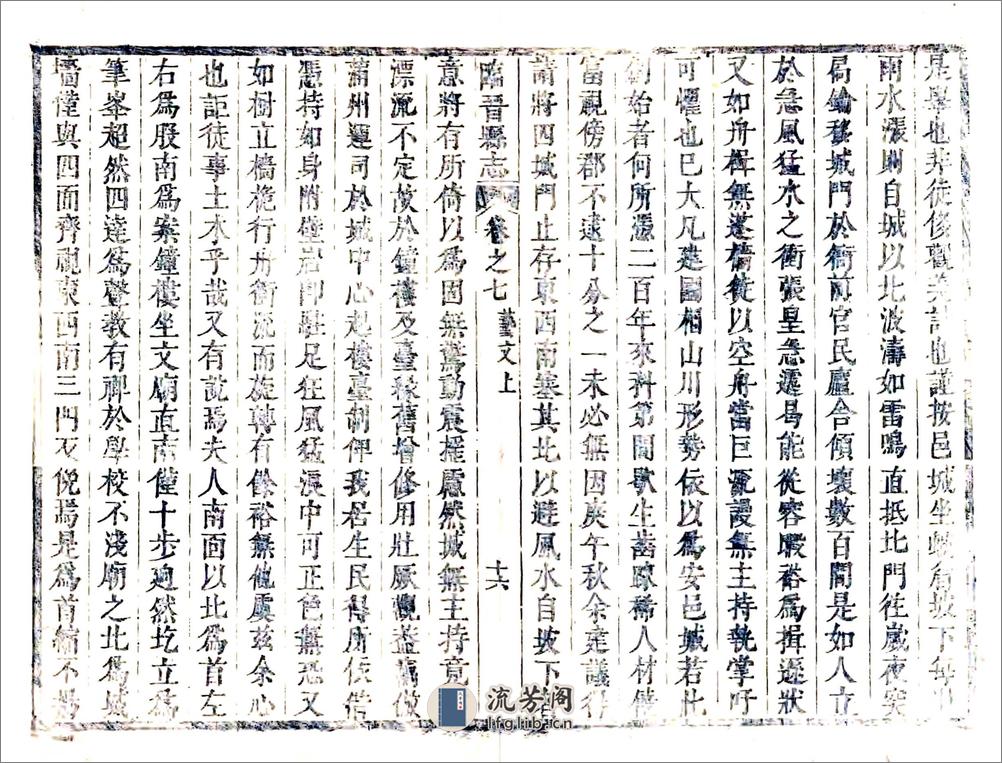 是舉也非徒侈觀美計也謹按邑城坐蛾眉坡下每
雨水漲則自城以北波濤如雷鳴直抵北門往歲夜突
局鑰移城門於衙前官民廬舍傾壞數百間是如人立
於急風猛水之衝張皇急遽曷能從容暇裕為揖遜狀
又如舟楫無蓬檣徒以空舟當巨流謾無主持執掌吁
可懼也已大凡建國相山川形勢依以為安邑城若此
創始者何所憑二百年來科第間歇生齒踈稀人材借
富視傍郡不逮十分之一未必無因庚午秋余建議得
請將四城門止存東西南塞其北以避風水自坡下
臨晉縣志 卷之七 藝文上 十六
意將有所倚以為固無驚動震搖慮然城無主持竟
漂流不定故於鐘樓及臺稼舊增修用壯厥觀益竊倣
蒲州運司於城中心起樓臺制俾我居生民得所依借
憑持如身附壁岩即駐足狂風猛浪中可正色無恐又
如樹立檣桅行舟衝沉而旋轉有餘裕無他虞茲余心
也詎徒事土木乎哉又有說焉夫人南面以北為首左
右為股南為案鐘樓坐文廟直南僅十步逈然圪立為
筆峯超然四達為聲教有禆於學校不淺廟之北為城
墻僅與四面齊視東西南三門反俛焉是為首縮不揚
流芳阁
hfg.kib.cn